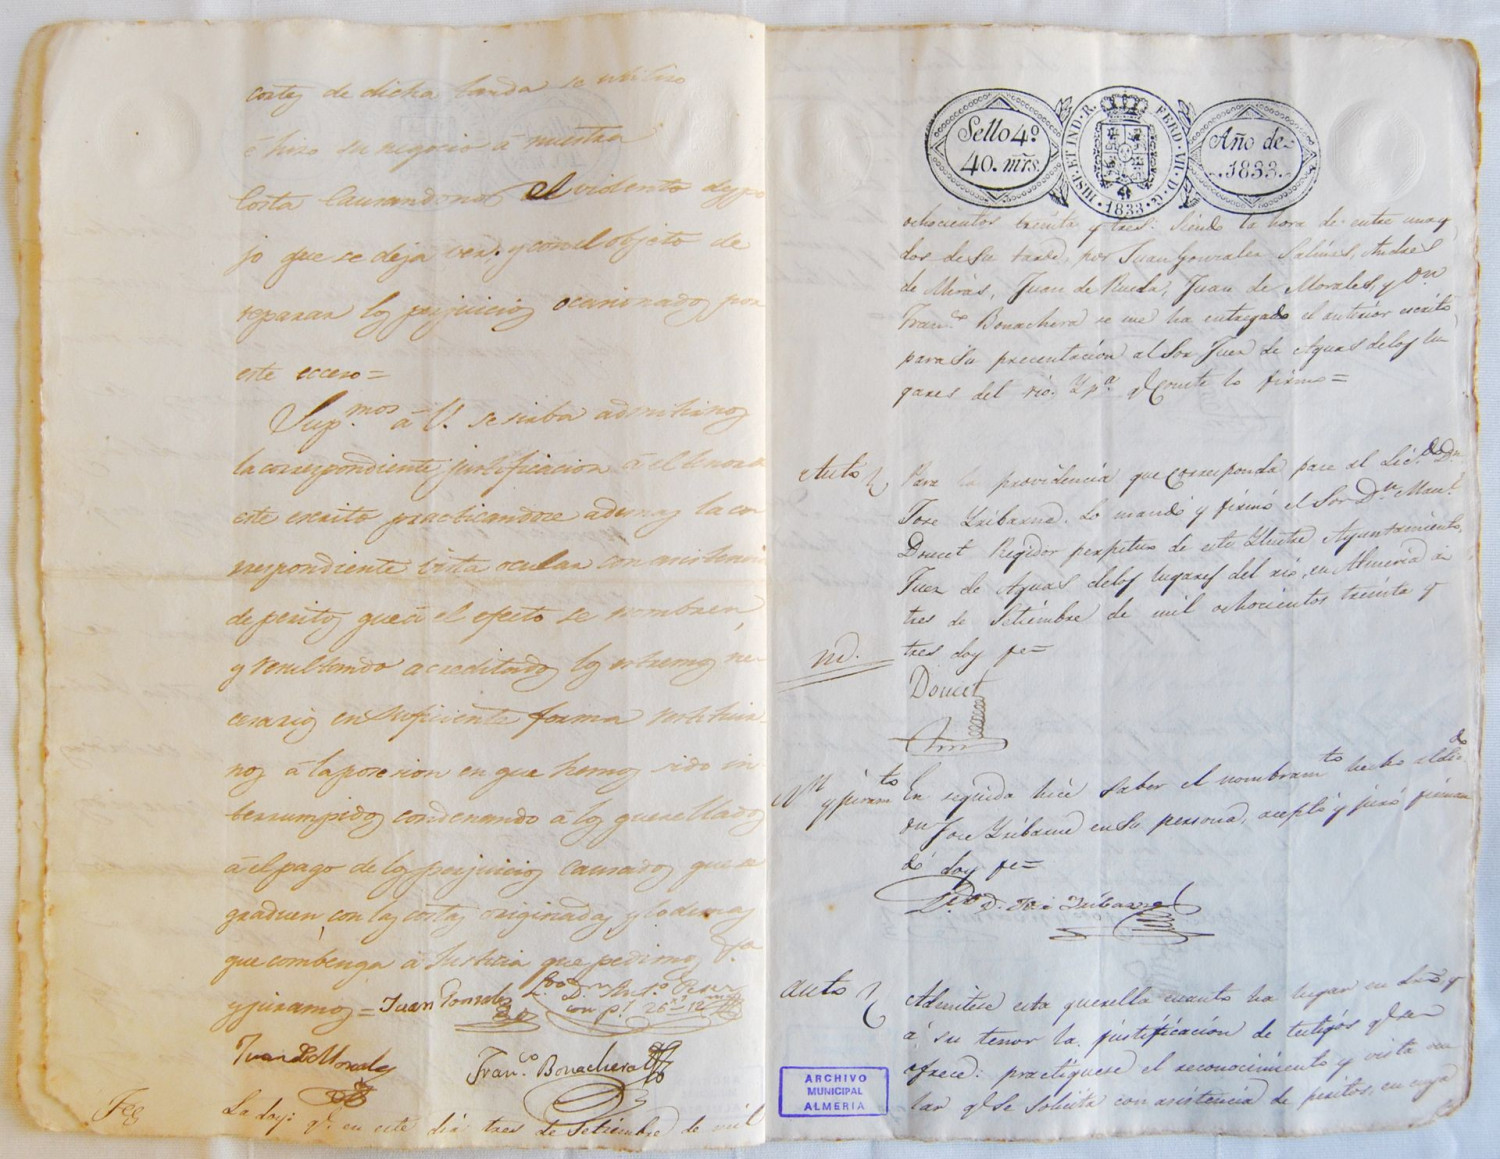 costas de dicha tanda se utilizo
é hizo su negocio á nuestra
Costa Causandonos el violento despo
jo que se deja ver. y con el objeto de
reparar los perjuicios ocacionados por
este ecceso =
Sup.mos á V. se sirba admitirnos
la correspondiente justificacion á el tenor de
este escrito practicandoce ademas la co
rrespondiente vista ocular con asistencia
de peritos que á el efecto se nombren,
y resultando acreditados los estremos ne-
cesarios en suficiente forma restituir
nos á la posecion en que hemos sido in-
terrumpidos condenando á los querellados
á el pago de los perjuicios causados que se
graduen con las costas originadas y lo demas
que combenga á Justicia que pedimos
y juramos = Juan Gonzales
Juan de Morales
Fran.co Bonachera
Fee
La doy: q.e en este dia tres de Setiembre de mil
Sello 4.º
40. mrs.
HISP. ET IND. R. FERD. VII. D. G.
1833
Año de
1833.
ochocientos treinta y tres: Siendo la hora de entre una y
dos de su tarde, por Juan Gonzales Salinas, Andres
de Miras, Juan de Rueda, Juan de Morales, y Dn
Fran.co Bonachera se me ha entregado el anterior escrito
para su precentacion al Sor Juez de Aguas delos lu
gares del rio. Y p.a q.e conste lo firmo =
Auto
Para la providencia que corresponda pace al Lic.do Dn
Jose Yribarne. Lo mando y firmo el Sor Dn Man.l
Doucet Regidor perpetuo de este Ylustre Ayuntamiento,
Juez de Aguas delos lugares del rio, en Almeria á
tres de Setiembre de mil ochocientos treinta y
tres doy fe =
Doucet
Nt y juram.to
En seguida hice saber el nombram.to hecho al Lic.do
Dn Jose Yribarne en su persona, aceptó y juró firman
do doy fe =
D. José Iribarne
Auto
Admitese esta querella cuanto ha lugar en dro y
á su tenor la justificacion de testigos q.e se
ofrece: practiquese el reconocimiento y vista ocu
lar q.e se solicita con asistencia de peritos, en cuya
ARCHIVO
MUNICIPAL
ALMERIA